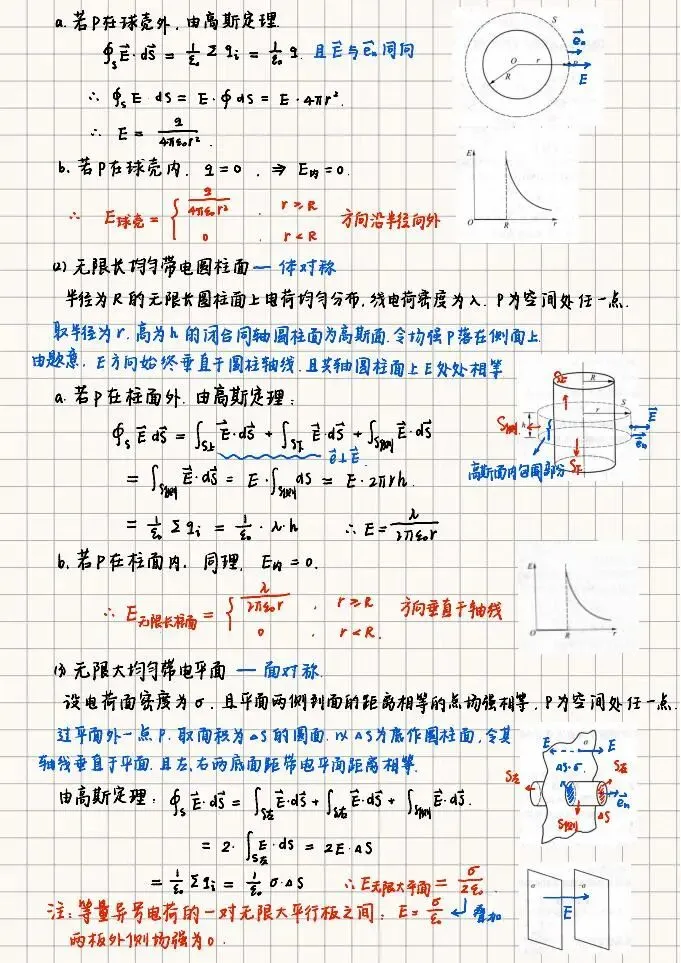 a. 若P在球壳外, 由高斯定理.
∮ₛ E⃗·dS⃗ = 1/ε₀ Σqᵢ = 1/ε₀ q. 且E⃗与e⃗ₙ同向
∴ ∮ₛ E dS = E·∮dS = E·4πr².
∴ E = q/4πε₀r².
S
e⃗ₙ
O r P
R
E⃗
b. 若P在球壳内. q=0. ⇒ E内=0.
∴ E球壳 = { q/4πε₀r² , r≥R
0 , r<R
方向沿半径向外
E
O R r
(2) 无限长均匀带电圆柱面 — 体对称
半径为R的无限长圆柱面上电荷均匀分布, 线电荷密度为λ. P为空间处任一点.
取半径为r. 高为h的闭合同轴圆柱面为高斯面. 令场强P落在侧面上.
由题意, E方向始终垂直于圆柱轴线. 且其轴圆柱面上E处处相等
a. 若P在柱面外. 由高斯定理:
∮ₛ E⃗ dS⃗ = ∫S上 E⃗·dS⃗ + ∫S下 E⃗·dS⃗ + ∫S侧 E⃗·dS⃗
e⃗⊥E⃗
= ∫S侧 E⃗·dS⃗ = E·∫S侧 dS = E·2πrh.
= 1/ε₀ Σqᵢ = 1/ε₀·λ·h ∴ E = λ/2πε₀r
S上
R
r S
S侧 h
E⃗
e⃗ₙ
S下
高斯面内包围部分
b. 若P在柱面内, 同理, E内=0.
∴ E无限长柱面 = { λ/2πε₀r , r≥R
0 , r<R.
方向垂直于轴线
E
O R r
(3) 无限大均匀带电平面 — 面对称.
设电荷面密度为σ. 且平面两侧到面的距离相等的点场强相等, P为空间处任一点.
过平面外一点P. 取面积为△S的圆面. 以△S为底作圆柱面, 令其
轴线垂直于平面. 且左、右两底面距带电平面距离相等.
由高斯定理: ∮ₛ E⃗·dS⃗ = ∫S左 E⃗·dS⃗ + ∫S右 E⃗·dS⃗ + ∫S侧 E⃗·dS⃗.
= 2·∫S左 E·dS = 2E·△S
= 1/ε₀ Σqᵢ = 1/ε₀ σ·△S ∴ E无限大平面 = σ/2ε₀
E σ E
△S·σ
e⃗ₙ
S侧 △S
注: 等量异号电荷的一对无限大平行板之间: E = σ/ε₀ ↲ 叠加
两板外侧场强为0.
E